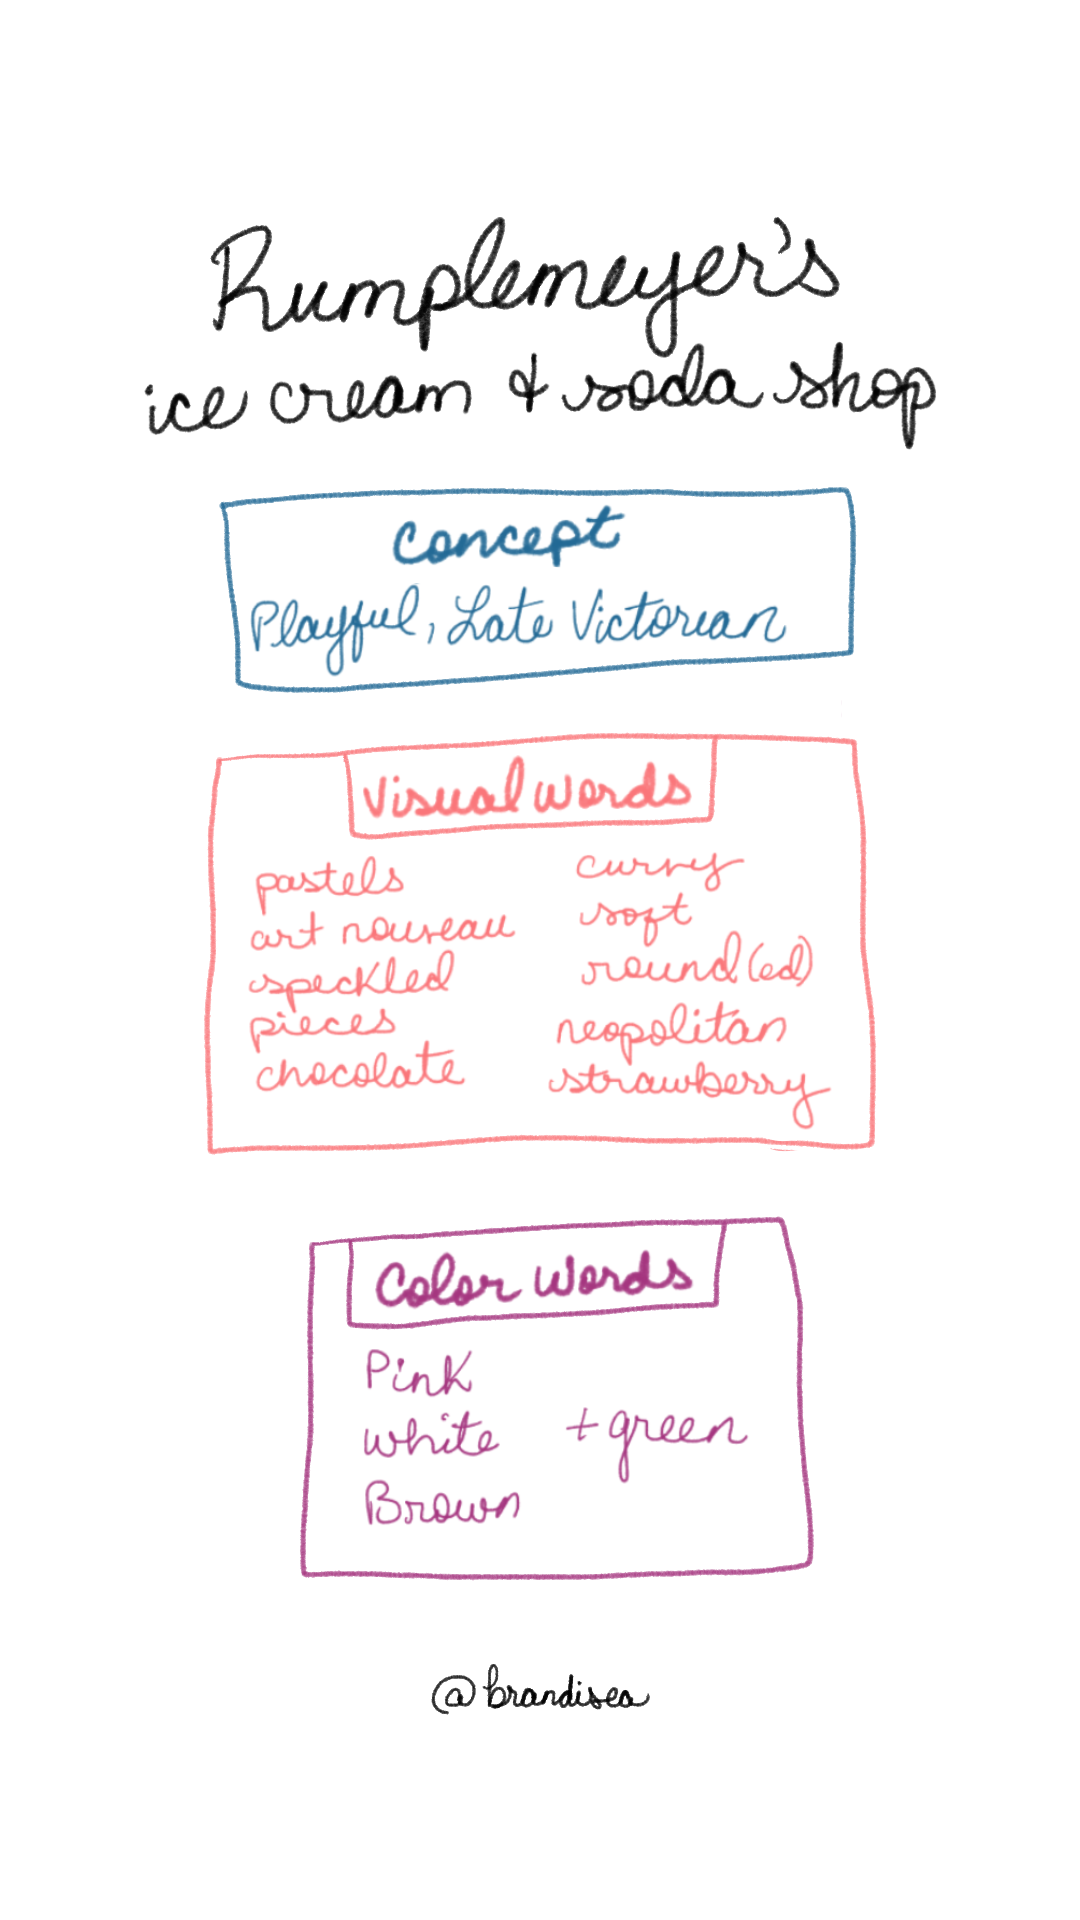 Rumplemeyer's
ice cream & soda shop
Concept
Playful, Late Victorian
Visual Words
pastels
art nouveau
speckled
pieces
chocolate
curvy
soft
round(ed)
neopolitan
strawberry
Color Words
Pink
white
Brown
+ green
@brandisea